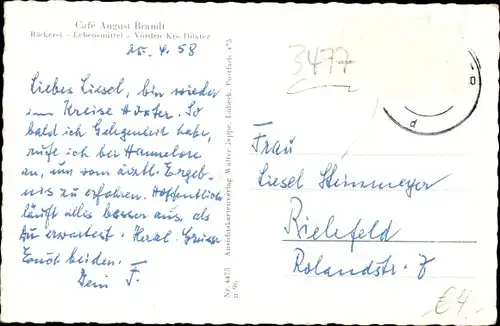 Café August Brandt
Bäckerei - Lebensmittel - Vörden Krs. Höxter
25. 4. 58
Liebes Liesel, bin wieder
im Kreise Höxter. So
bald ich Gelegenheit habe,
rufe ich bei Hannelore
an, um vom ärztl. Ergeb-
nis zu erfahren. Hoffentlich
läuft alles besser aus, als
Du erwartest. Herzl. Grüsse
Euch beiden.
Dein F.
Nr. 4475 Ansichtskartenverlag Walter Jappe, Lübeck, Postfach 475
3477
Frau
Liesel Steinmeyer
Bielefeld
Rolandstr. 7
€4.-